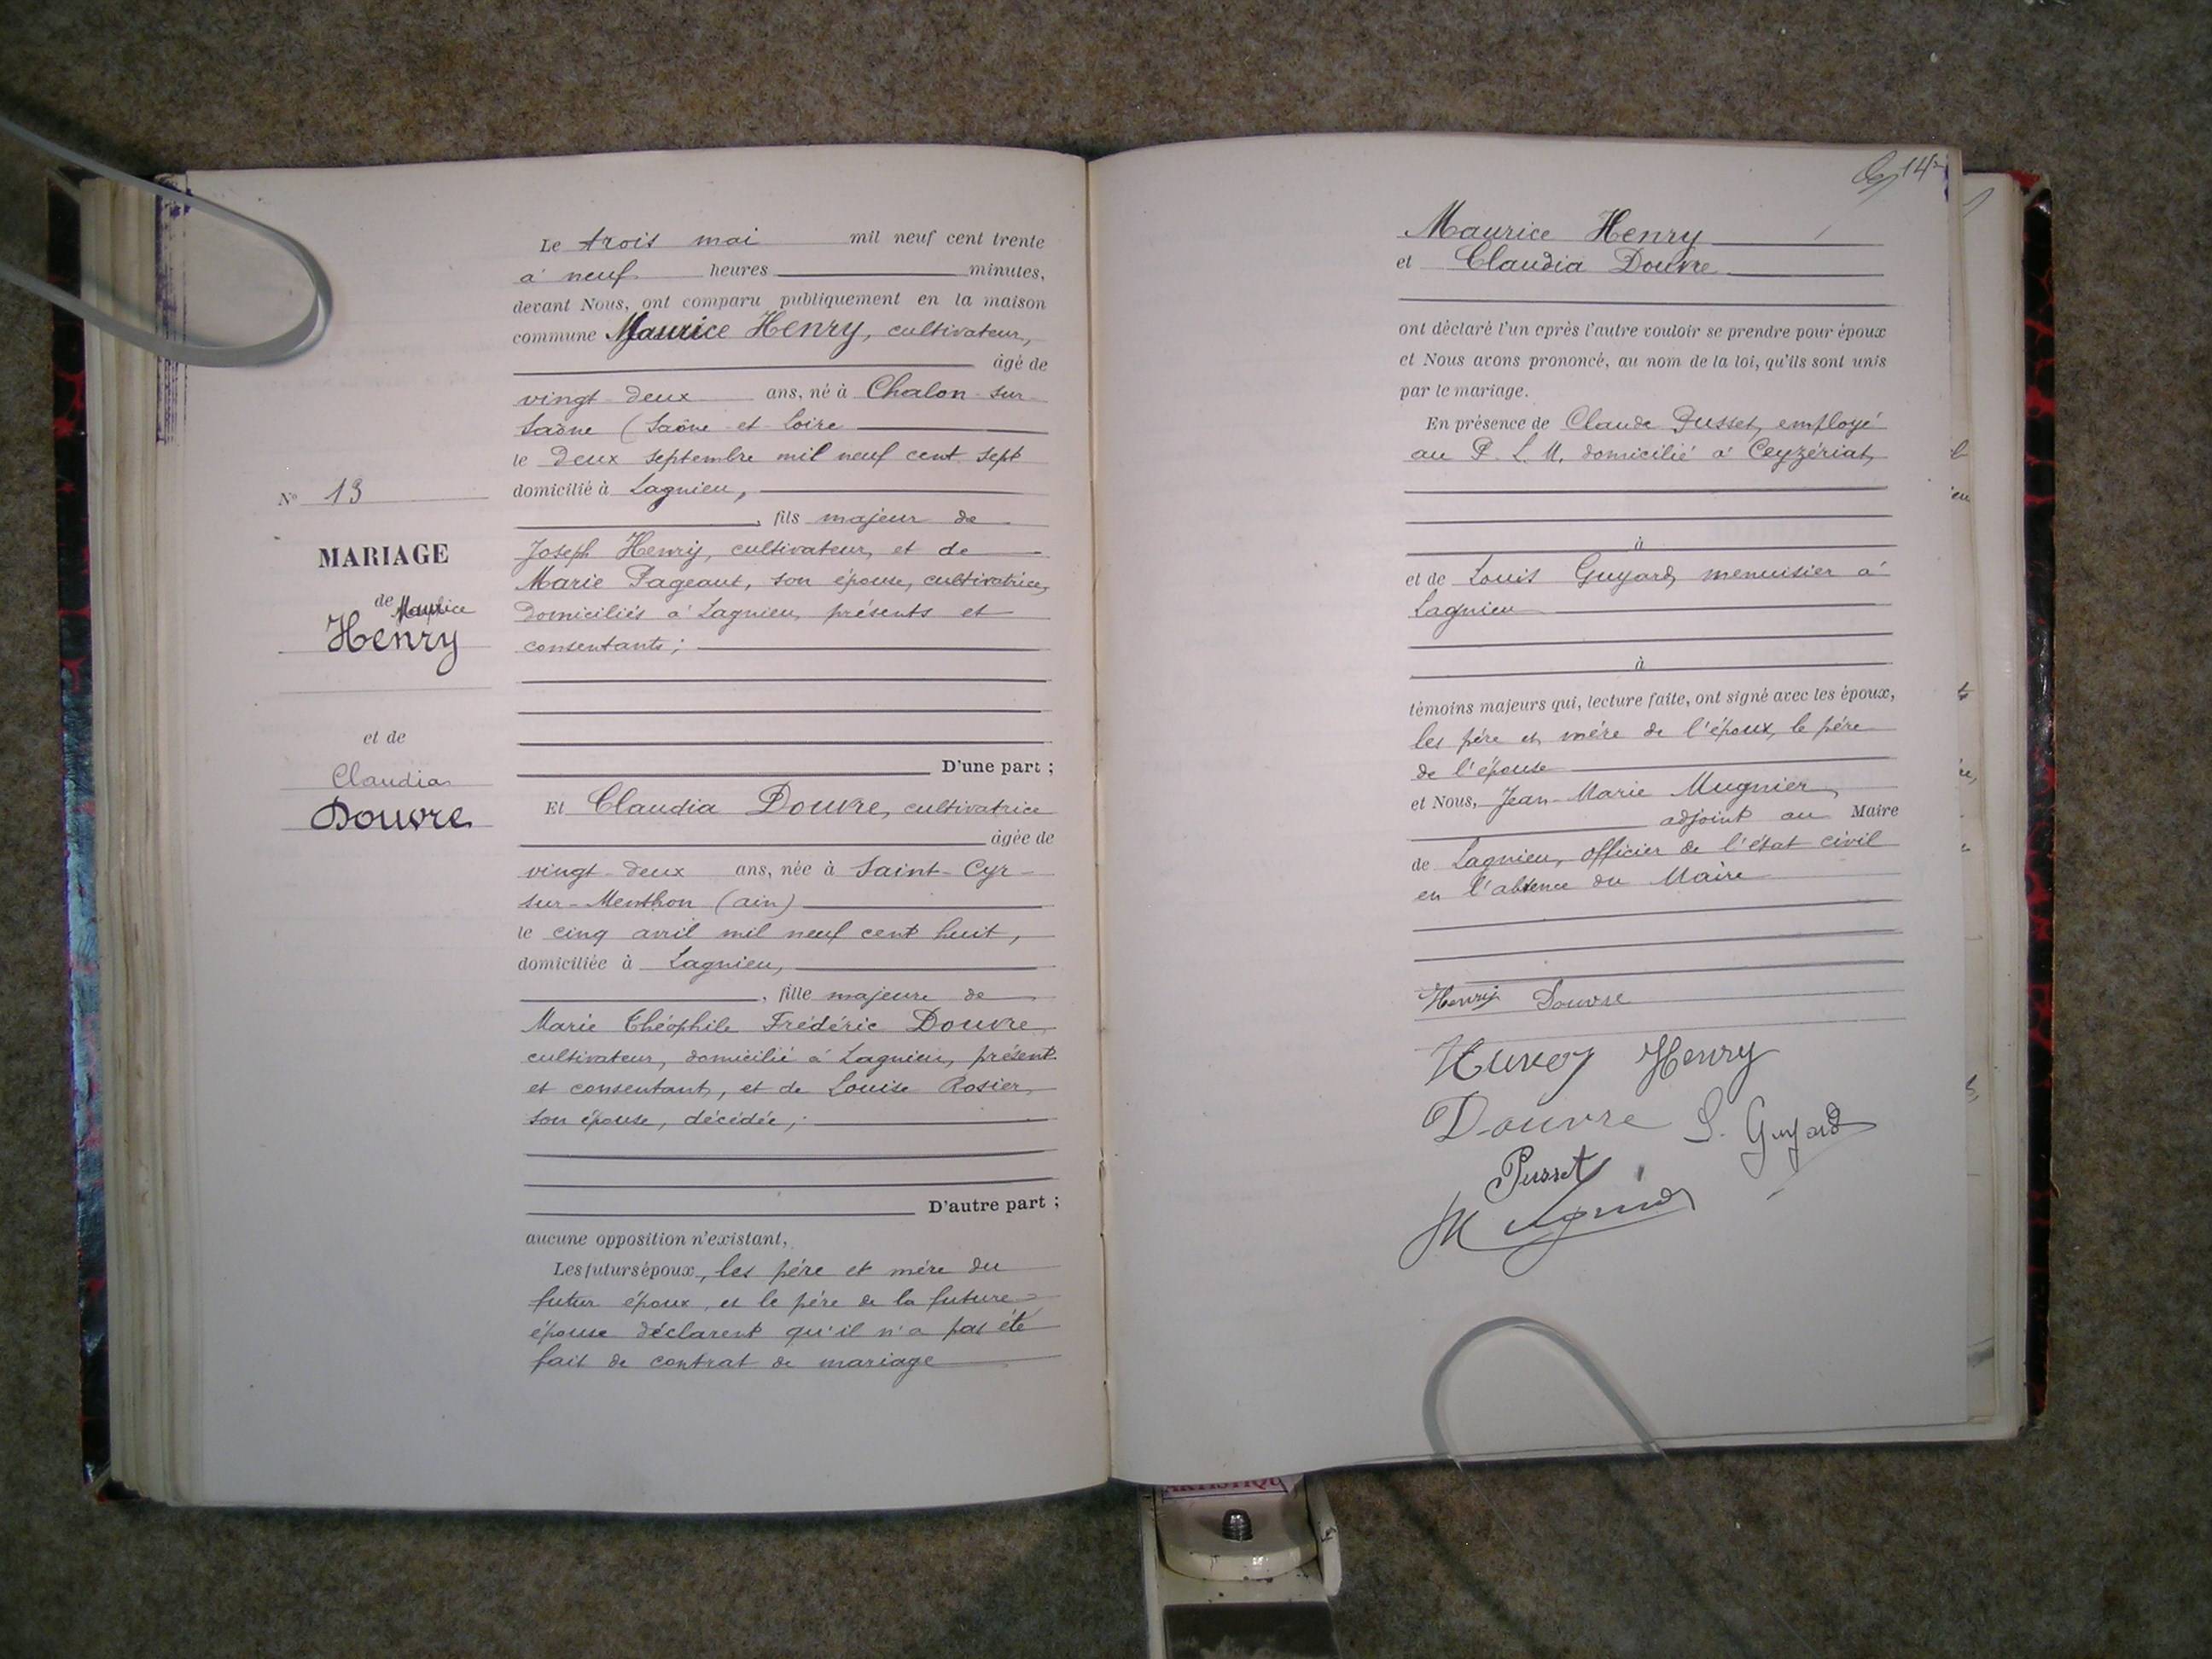 Le trois mai mil neuf cent trente
à neuf heures minutes,
devant Nous, ont comparu publiquement en la maison
commune Maurice Henry, cultivateur,
âgé de
vingt-deux ans, né à Chalon-sur-
Saône (Saône-et-Loire
le deux septembre mil neuf cent sept
domicilié à Lagnieu,
, fils majeur de
Joseph Henry, cultivateur, et de
Marie Pageaut, son épouse, cultivatrice,
domiciliés à Lagnieu, présents et
consentants;
D'une part ;
Et Claudia Douvre, cultivatrice
âgée de
vingt-deux ans, née à Saint-Cyr-
sur-Menthon (ain)
le cinq avril mil neuf cent huit,
domiciliée à Lagnieu,
, fille majeure de
Marie Théophile Frédéric Douvre
cultivateur, domicilié à Lagnieu, présent
et consentant, et de Louise Rosier,
son épouse, décédée;
D'autre part ;
aucune opposition n'existant,
Les futurs époux, les père et mère du
futur époux, et le père de la future
épouse déclarent qu'il n'a pas été
fait de contrat de mariage
No 13
MARIAGE
de Maurice
Henry
et de
Claudia
Douvre
14
Maurice Henry
et Claudia Douvre
ont déclaré l'un après l'autre vouloir se prendre pour époux
et Nous avons prononcé, au nom de la loi, qu'ils sont unis
par le mariage.
En présence de Claude Pusset, employé
au P.L.M. domicilié à Ceyzériat,
à
et de Louis Guyard, menuisier à
Lagnieu
à
témoins majeurs qui, lecture faite, ont signé avec les époux,
les père et mère de l'époux, le père
de l'épouse
et Nous, Jean-Marie Mugnier,
adjoint au Maire
de Lagnieu, officier de l'état civil
en l'absence du Maire
Henry Douvre
Henry
Douvre L. Guyard
Pusset
Mugnier